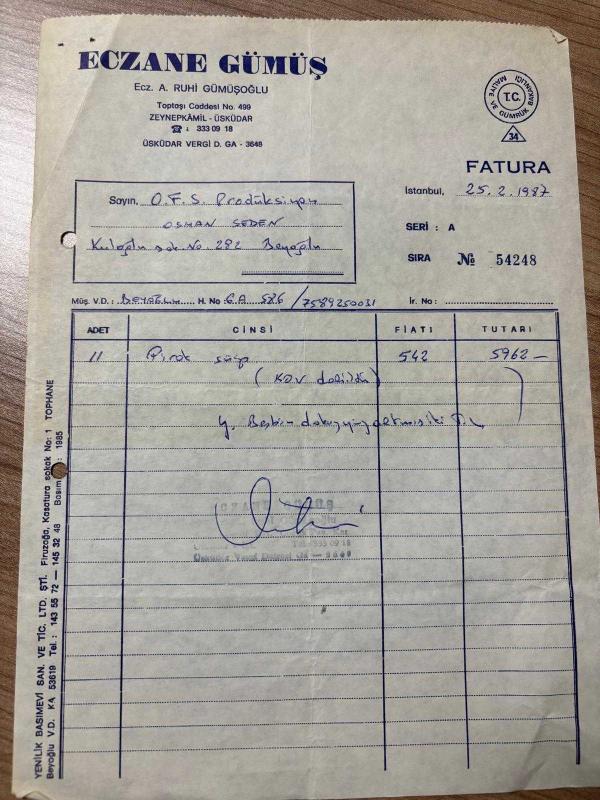 ECZANE GÜMÜŞ
Ecz. A. RUHİ GÜMÜŞOĞLU
Toptaşı Caddesi No. 499
ZEYNEPKÂMİL - ÜSKÜDAR
☎ : 333 09 18
ÜSKÜDAR VERGİ D. GA - 3648
T.C.
MALİYE VE GÜMRÜK BAKANLIĞI
34
FATURA
İstanbul, 25.2.1987
SERİ : A
SIRA № 54248
Sayın, O.F.S. Prodüksiyon
OSMAN SEDEN
Kuloğlu sok. No. 282 Beyoğlu
Müş. V.D. : BEYOĞLU H. No GA 586 / 7589250031 İr. No :
ADET CİNSİ FİATI TUTARI
11 Pirok süp 542 5962 —
(KDV dahildir)
Y. Beşbin dokuzyüzaltmışiki T.L
YENİLİK BASIMEVİ SAN. VE TİC. LTD. ŞTİ. Firuzağa, Kasatura sokak No: 1 TOPHANE
Beyoğlu V.D. KA 53619 Tel.: 143 55 72 — 145 32 48 Basım : 1985